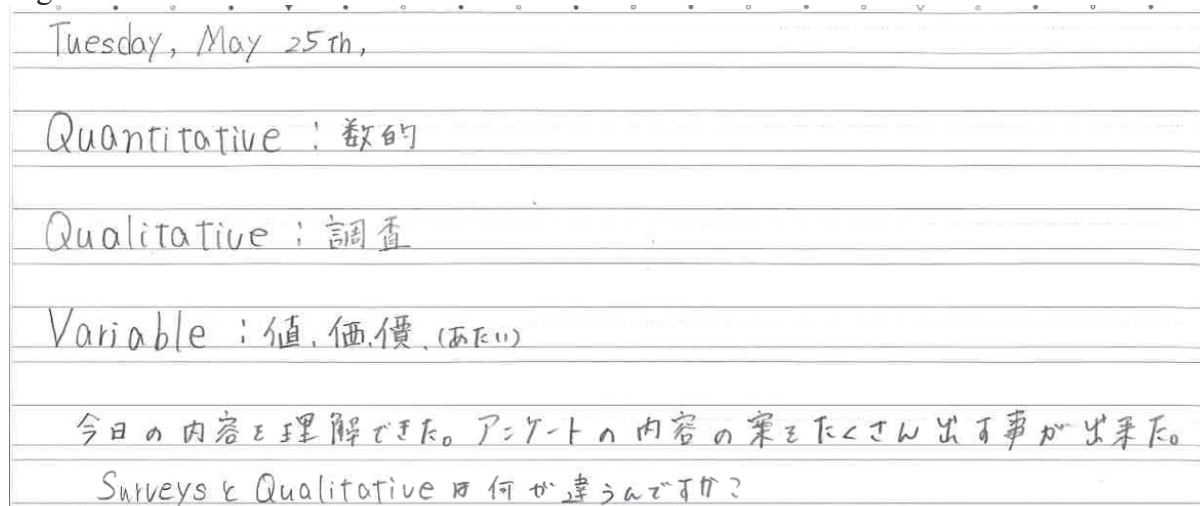 Tuesday, May 25th,
Quantitative : 数的
Qualitative : 調査
Variable : 値、価、價、(あたい)
今日の内容を理解できた。アンケートの内容の案をたくさん出す事が出来た。
SurveysとQualitativeは何が違うんですか?